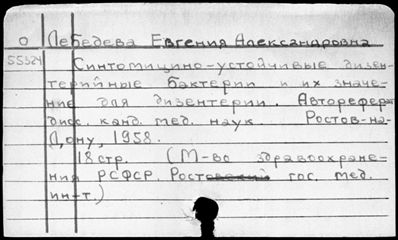 О Лебедева Евгения Александровна
55324 Синтомицино-устойчивые дизен-
терийные бактерии и их значе-
ние для дизентерии. Автореферат
дисс. канд. мед. наук. Ростов-на-
Дону, 1958.
18 стр. (М-во здравоохране-
ния РСФСР. Ростовский гос. мед.
ин-т.)